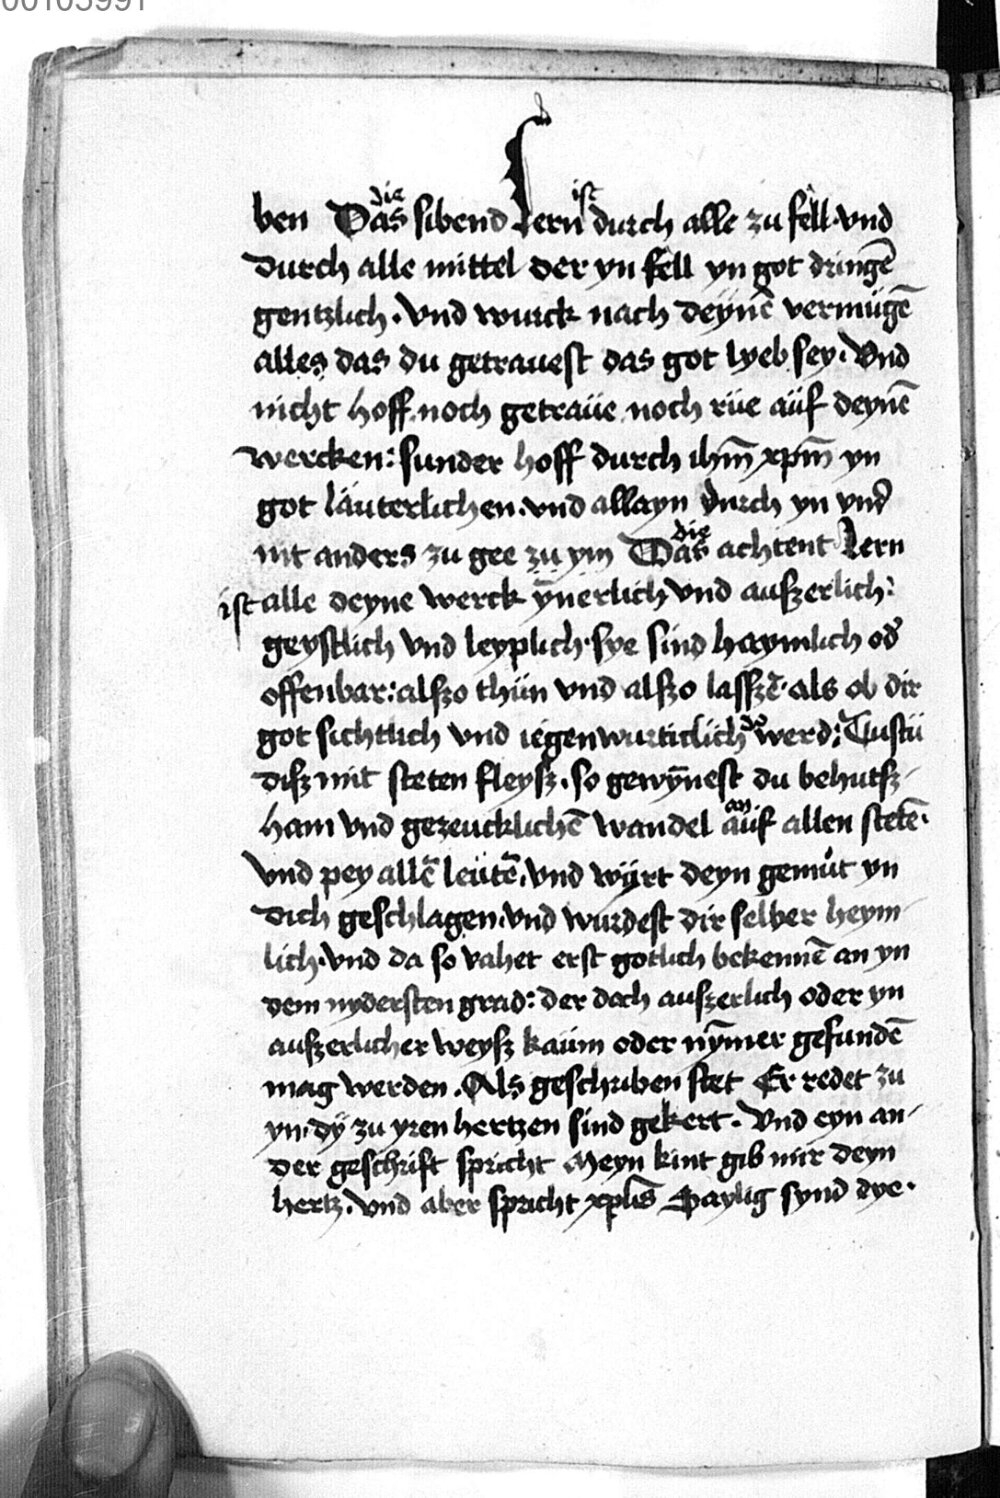 00105991
die ist
ben Das sibend Lern durch alle zu fell · vnd
durch alle mittel der yn fell yn got dringē
gentzlich · vnd wurck nach deynē vermügē
alles das du getrauest das got lyeb sey · Vnd
nicht hoff noch getraüe noch rüe aüf deynē
wercken : sunder hoff durch ihm̄ xpm̄ yn
got läuterlichen · vnd allayn durch yn vnd
die
nit anders zu gee zu ym Das achtent Lern
ist alle deyne werck ȳnerlich vnd auszerlich :
geystlich vnd leyplich · sye sind haymlich od̄
offenbar : alszo thün vnd alszo lasszē · als ob dir
got sichtlich vnd iegenwurticlich do werd : Tustü
disz mit steten fleysz · so gewȳnest du behutsz-
an
ham vnd gezeucklichē wandel auf allen stetē ·
vnd pey allē leütē · vnd wÿrt deyn gemüt yn
dich geschlagen · vnd wurdest dir selber heym-
lich · vnd da so vahet erst gotlich bekennē an yn
dem nydersten grad : der doch auszerlich oder yn
auszerlicher weysz kaüm oder nȳmer gefundē
mag werden · Als geschriben stet Er redet zu
yn · dÿ zu yren hertzen sind gekert · Vnd eyn an-
der geschrift spricht Meyn kint gib mir deyn
hertz · vnd aber spricht xpūs Haylig synd dye ·